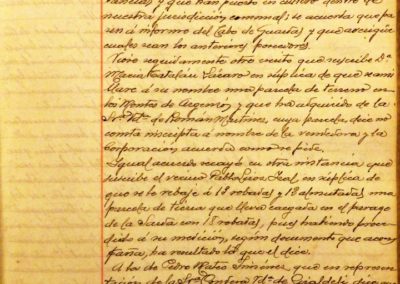 tancias y que han puesto en cultivo dentro de
nuestra jurisdicción comunal; se acuerda que pa
sen á informe del Cabo de Guardas, y que averigüe
cuales sean los anteriores poseedores.
Vióse seguidamente otro escrito que suscribe Dª
María Castelar Lázaro en súplica de que se ami
llare á su nombre una parcela de terreno en
los Montes de Cegemón, y que ha adquirido de la
Srª Vdª de Román Martínez, cuya parcela dice no
consta inscripta á nombre de la vendedora y la
Corporación acuerda como se pide.
Igual acuerdo recayó en otra instancia que
suscribe el vecino Pablo Luna Leal, en súplica de
que se le rebaje á 15 robadas y 12 almutadas, una
parcela de tierra que lleva cargada en el parage
de la Sarda con 18 robadas, pues habiendo proce
dido á su medición, según documento que acom
paña, ha resultado lo que él dice.
A la de Pedro Mateo Jiménez, que en represen